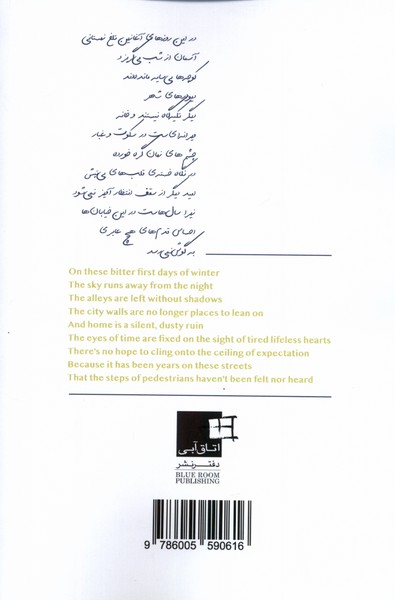 در این روزهای آغازین تلخ زمستانی
آسمان از شب می‌گریزد
کوچه‌ها بی‌سایه مانده‌اند
دیوارهای شهر
دیگر تکیه‌گاه نیستند و خانه
ویرانه‌ای ست در سکوت و غبار
چشم‌های زمان گره خورده
در نگاه خسته‌ی قلب‌های بی‌تپش
امید دیگر از سقف انتظار آویز نمی‌شود
زیرا سال‌هاست در این خیابان‌ها
احساس قدم‌های هیچ عابری
به گوش نمی‌رسد
On these bitter first days of winter
The sky runs away from the night
The alleys are left without shadows
The city walls are no longer places to lean on
And home is a silent, dusty ruin
The eyes of time are fixed on the sight of tired lifeless hearts
There's no hope to cling onto the ceiling of expectation
Because it has been years on these streets
That the steps of pedestrians haven't been felt nor heard
اتاق آبی
دفتر نشر
BLUE ROOM
PUBLISHING
9 786005 590616